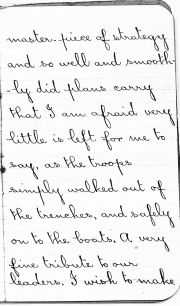 master-piece of strategy
and so well and smooth-
-ly did plans carry
that I am afraid very
little is left for me to
say, as the troops
simply walked out of
the trenches, and safely
on to the boats. A very
fine tribute to our
leaders. I wish to make